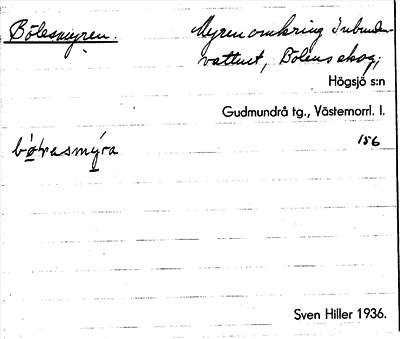 Bölesmyren. Myren omkring Inbunden-
vattnet, Bölens skog;
Högsjö s:n
Gudmundrå tg., Västernorrl. l.
156
Sven Hiller 1936.